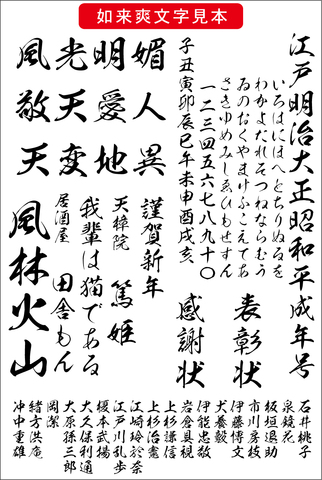 如来爽文字見本
江戸明治大正昭和平成年号
いろはにほへとちりぬるを
わかよたれそつねならむう
ゐのおくやまけふこえてあ
さきゆめみしゑひもせすん
一二三四五六七八九十〇
子丑寅卯辰巳午未申酉戌亥
媚人異
明愛地
光天変
風敬天
表彰状
感謝状
謹賀新年
天璋院
篤姫
我輩は猫である
居酒屋
田舎もん
風林火山
石井桃子
泉鏡花
板垣退助
市川房枝
伊藤博文
犬養毅
伊能忠敬
岩倉具視
上杉謙信
上杉治憲
江崎玲於奈
江戸川乱歩
榎本武揚
大久保利通
大原孫三郎
岡潔
緒方洪庵
沖中重雄